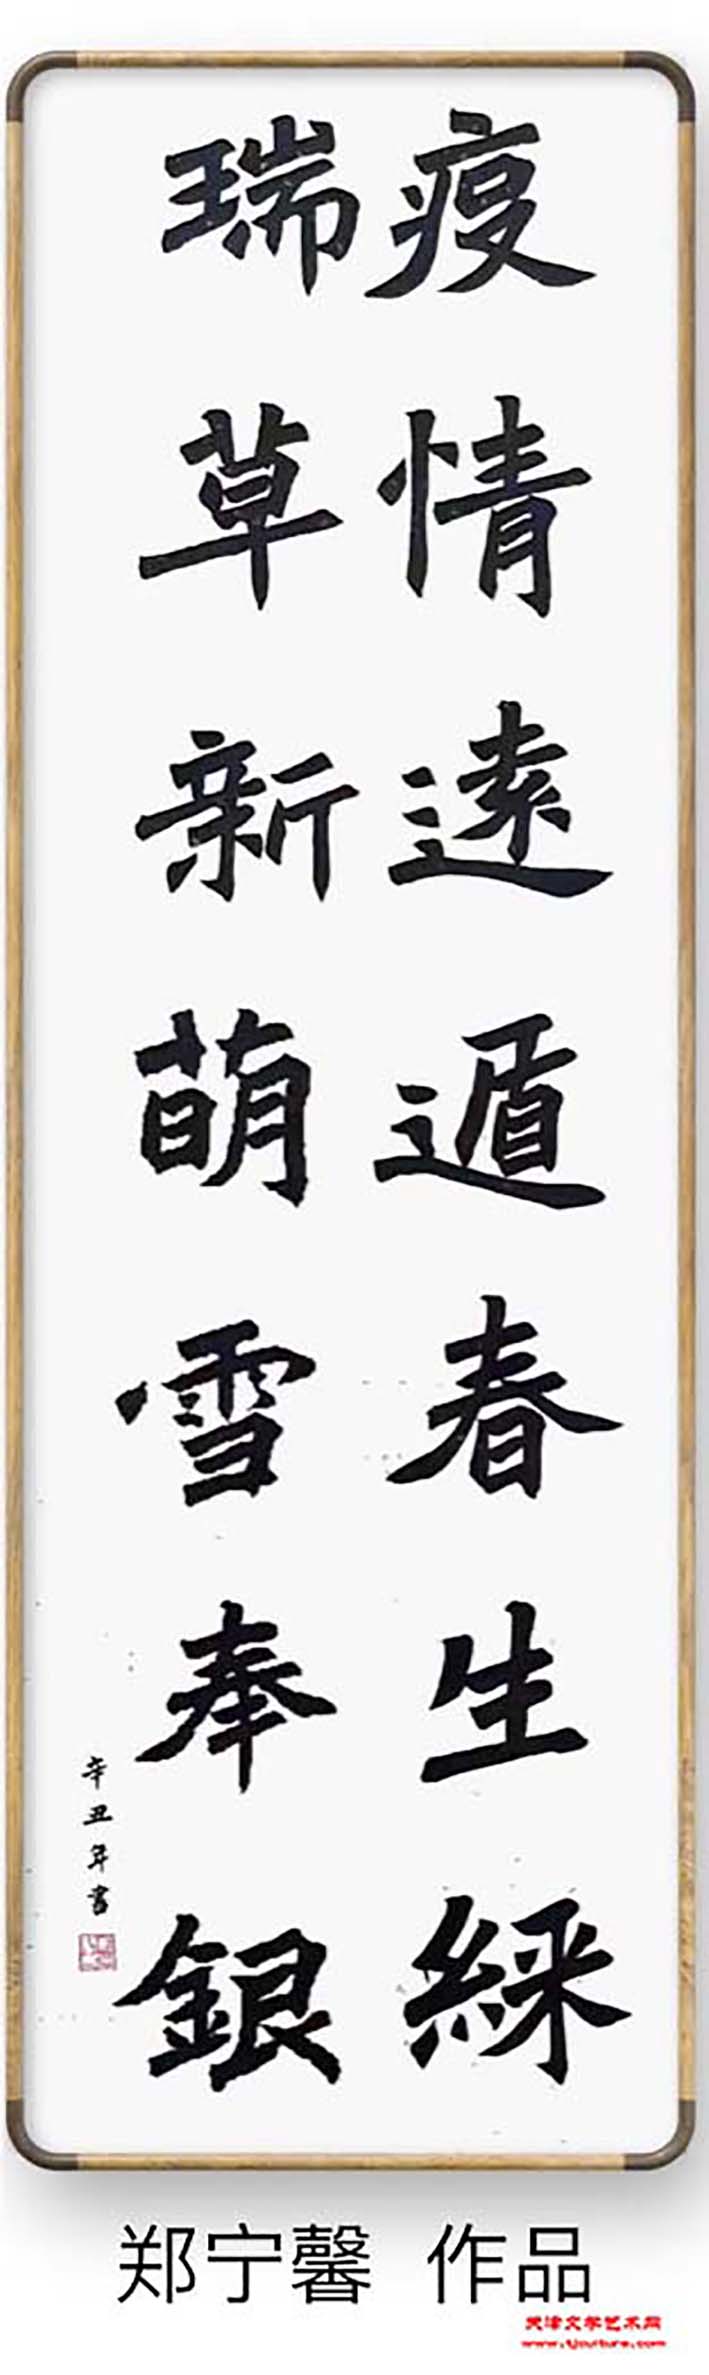 疫情遠遁春生綵
瑞草新萌雪奉銀
辛丑年書
郑宁馨 作品
天津文学艺术网
www.tjculture.com